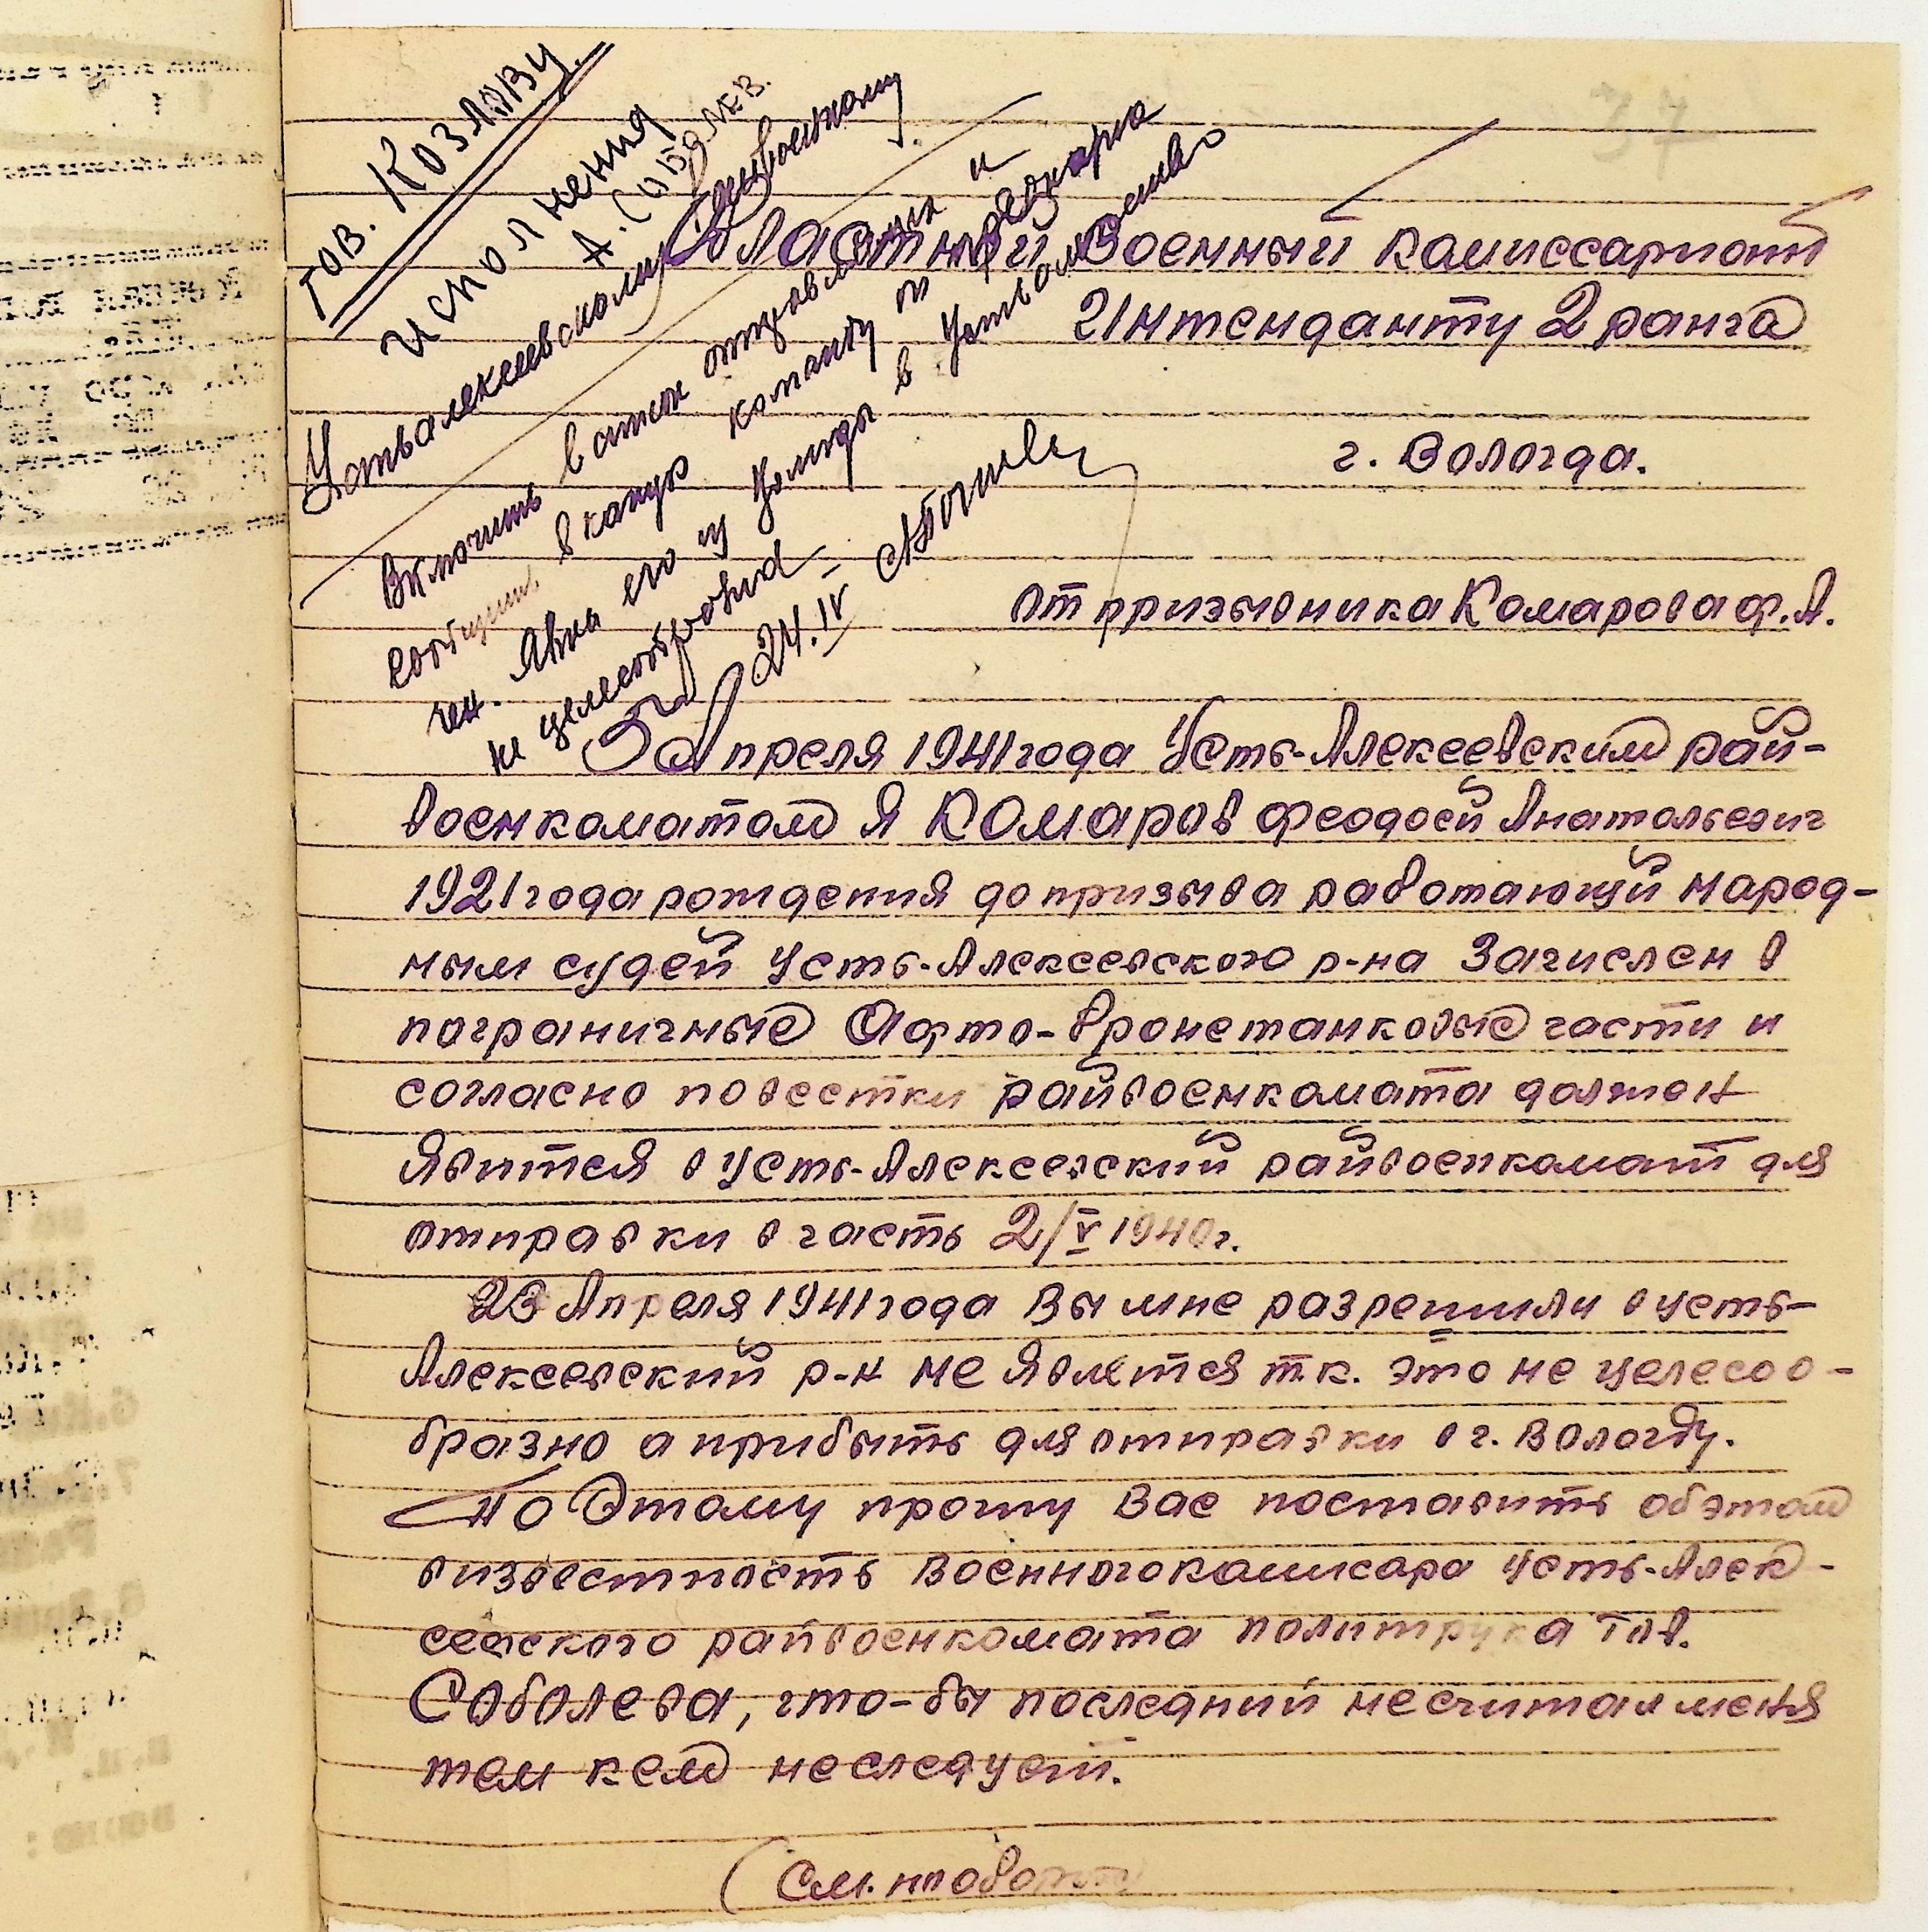 37
тов. Козлову.
исполнения
А. Соболев.
Устьалексеевскому райвоенкому
Включить в список отправляемых и
сообщить в канун команду от резерва
чен. Явка его из Вологды в Устьалексеево
не целесообразна
24.IV
Областной Военный комиссариат
Интенданту 2 ранга
г. Вологда.
от призывника Комарова Ф.А.
Апреля 1941 года Усть-Алексеевским рай-
военкоматом Я Комаров Феодосей Анатольевич
1921 года рождения до призыва работающий народ-
ным судьей Усть-Алексеевского р-на Зачислен в
пограничные Афто-бронетанковые части и
согласно повестки райвоенкомата должен
явится в Усть-Алексеевский райвоенкомат для
отправки в часть 2/V 1940 г.
23 Апреля 1941 года Вы мне разрешили в усть-
Алексеевский р-н не являтся т.к. это не целесоо-
бразно а прибыть для отправки в г. Вологду.
По Этому прошу Вас поставить об этом
в известность Военного комисара Усть-Алек-
сеевского райвоенкомата политрука тов.
Соболева, что-бы последний не считал меня
тем кем не следует.
(См. на оборот